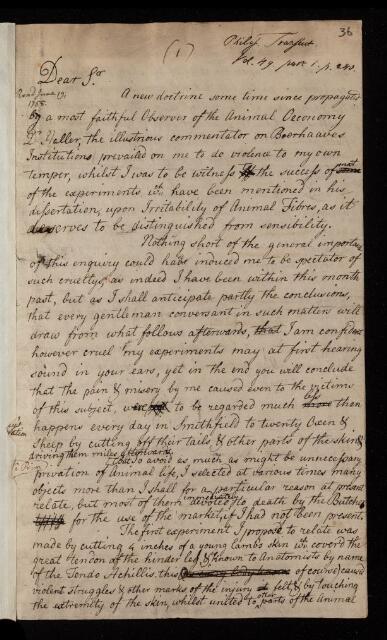 36
Philos. Transact
(1)
Vol. 49 part 1. p. 240.
Dear Sr
Read June 19,
A new doctrine some time since propagated
1755.
By a most faithful Observer of the Animal Oeconomy
Dr. Haller, the illustrious commentator on Boerhaaves
Institutions prevailed on me to do violence to my own
temper, whilst I was to be witness the success of most
of the experiments wch have been mentioned in his
dissertation, upon Irritability of Animal Fibres, as it
deserves to be distinguished from sensibility.
Nothing short of the general importance
of this enquiry could have induced me to be spectator of
such crueltys, as indeed I have been within this month
past, but as I shall anticypate partly the conclusions,
that every gentleman conversant in such matters will
draw from what follows afterwards, that I am confident
however cruel my experiments may at first hearing
sound in your ears, yet in the end you will conclude
that the pain & misery by me caused even to the victims
of this subject, to be regarded much less then
happens every day in Smithfield to twenty Oxen &
sheep by cutting off their tails, & other parts of the skin &
driving them miles afterwards.
to avoid as much as might be unnecessary
privation of Animal life, I selected at various times many
objects more than I shall for a particular reason at present
relate, but most of them devoted to death by the Butcher
immediately
for the use of the market, if I had not been present.
The first experiment I propose to relate was
made by cutting 4 inches of a young lambs skin wch coverd the
great Tendon of the hinder leg, & known to Anatomists by name
of the Tendo Achillis. this of course caused
violent struggles & other marks of the injury felt, & by touching
the extremity of the skin, whilst united to other parts of the animal